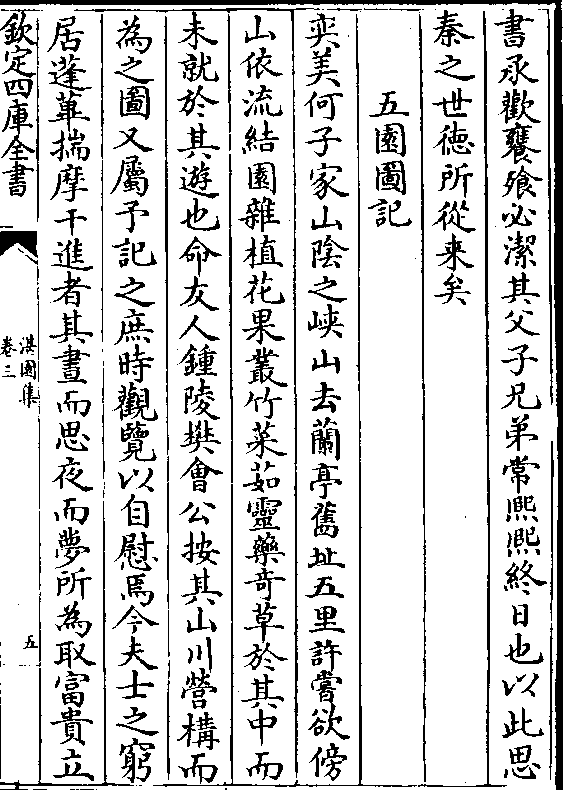 書承歡襲飱必潔其父子兄弟常熙熙終日也以此思
秦之世徳所從来矣
五園圖記
奕美何子家山陰之峡山去蘭亭舊址五里許嘗欲傍
山依流結園雜植花果叢竹菜茹靈藥竒草於其中而
未就於其遊也命友人鍾陵樊會公按其山川營構而
為之圖又屬予記之庶時觀覽以自慰焉今夫士之窮
居蓬蓽揣摩干進者其晝而思夜而夢所為取富貴立
欽定四庫全書
湛園集
卷三
五